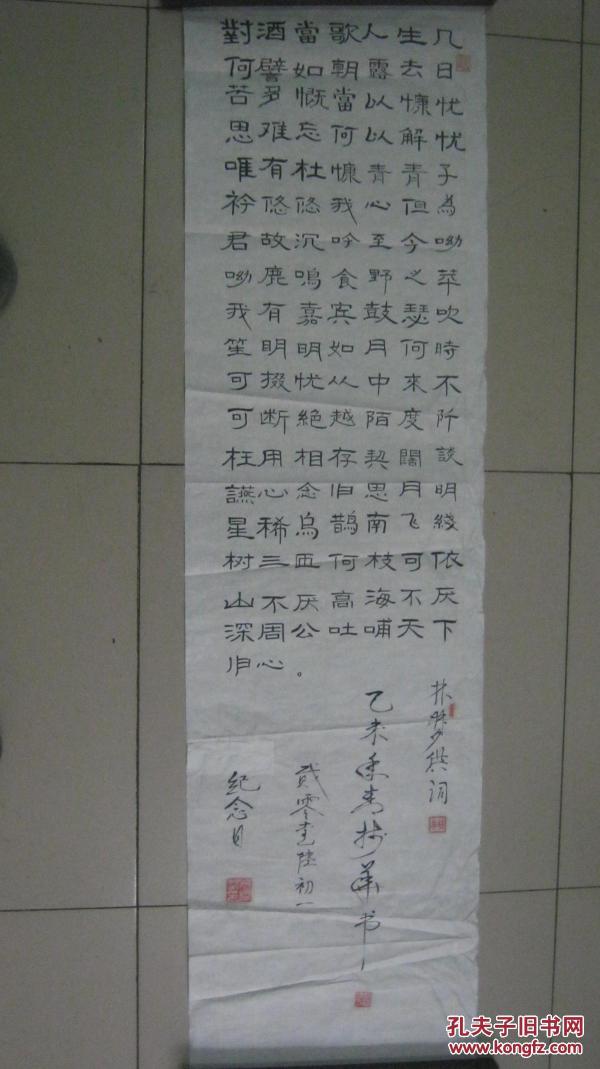 對酒當歌人生几
何譬如朝露去日
苦多慨當以慷忧
思难忘何以解忧
唯有杜慷青青子
衿悠悠我心但為
君故沉吟至今呦
呦鹿鳴食野之苹
我有嘉宾鼓瑟吹
笙明明如月何時
可掇忧从中來不
可断絕越陌度阡
枉用相存契闊談
讌心念旧思月明
星稀烏鵲南飞綫
树三匝何枝可依
山不厌高海不厌
深周公吐哺天下
归心。
词
乙未书
貳零壹陸初一
纪念日
孔夫子旧书网
www.kongfz.com